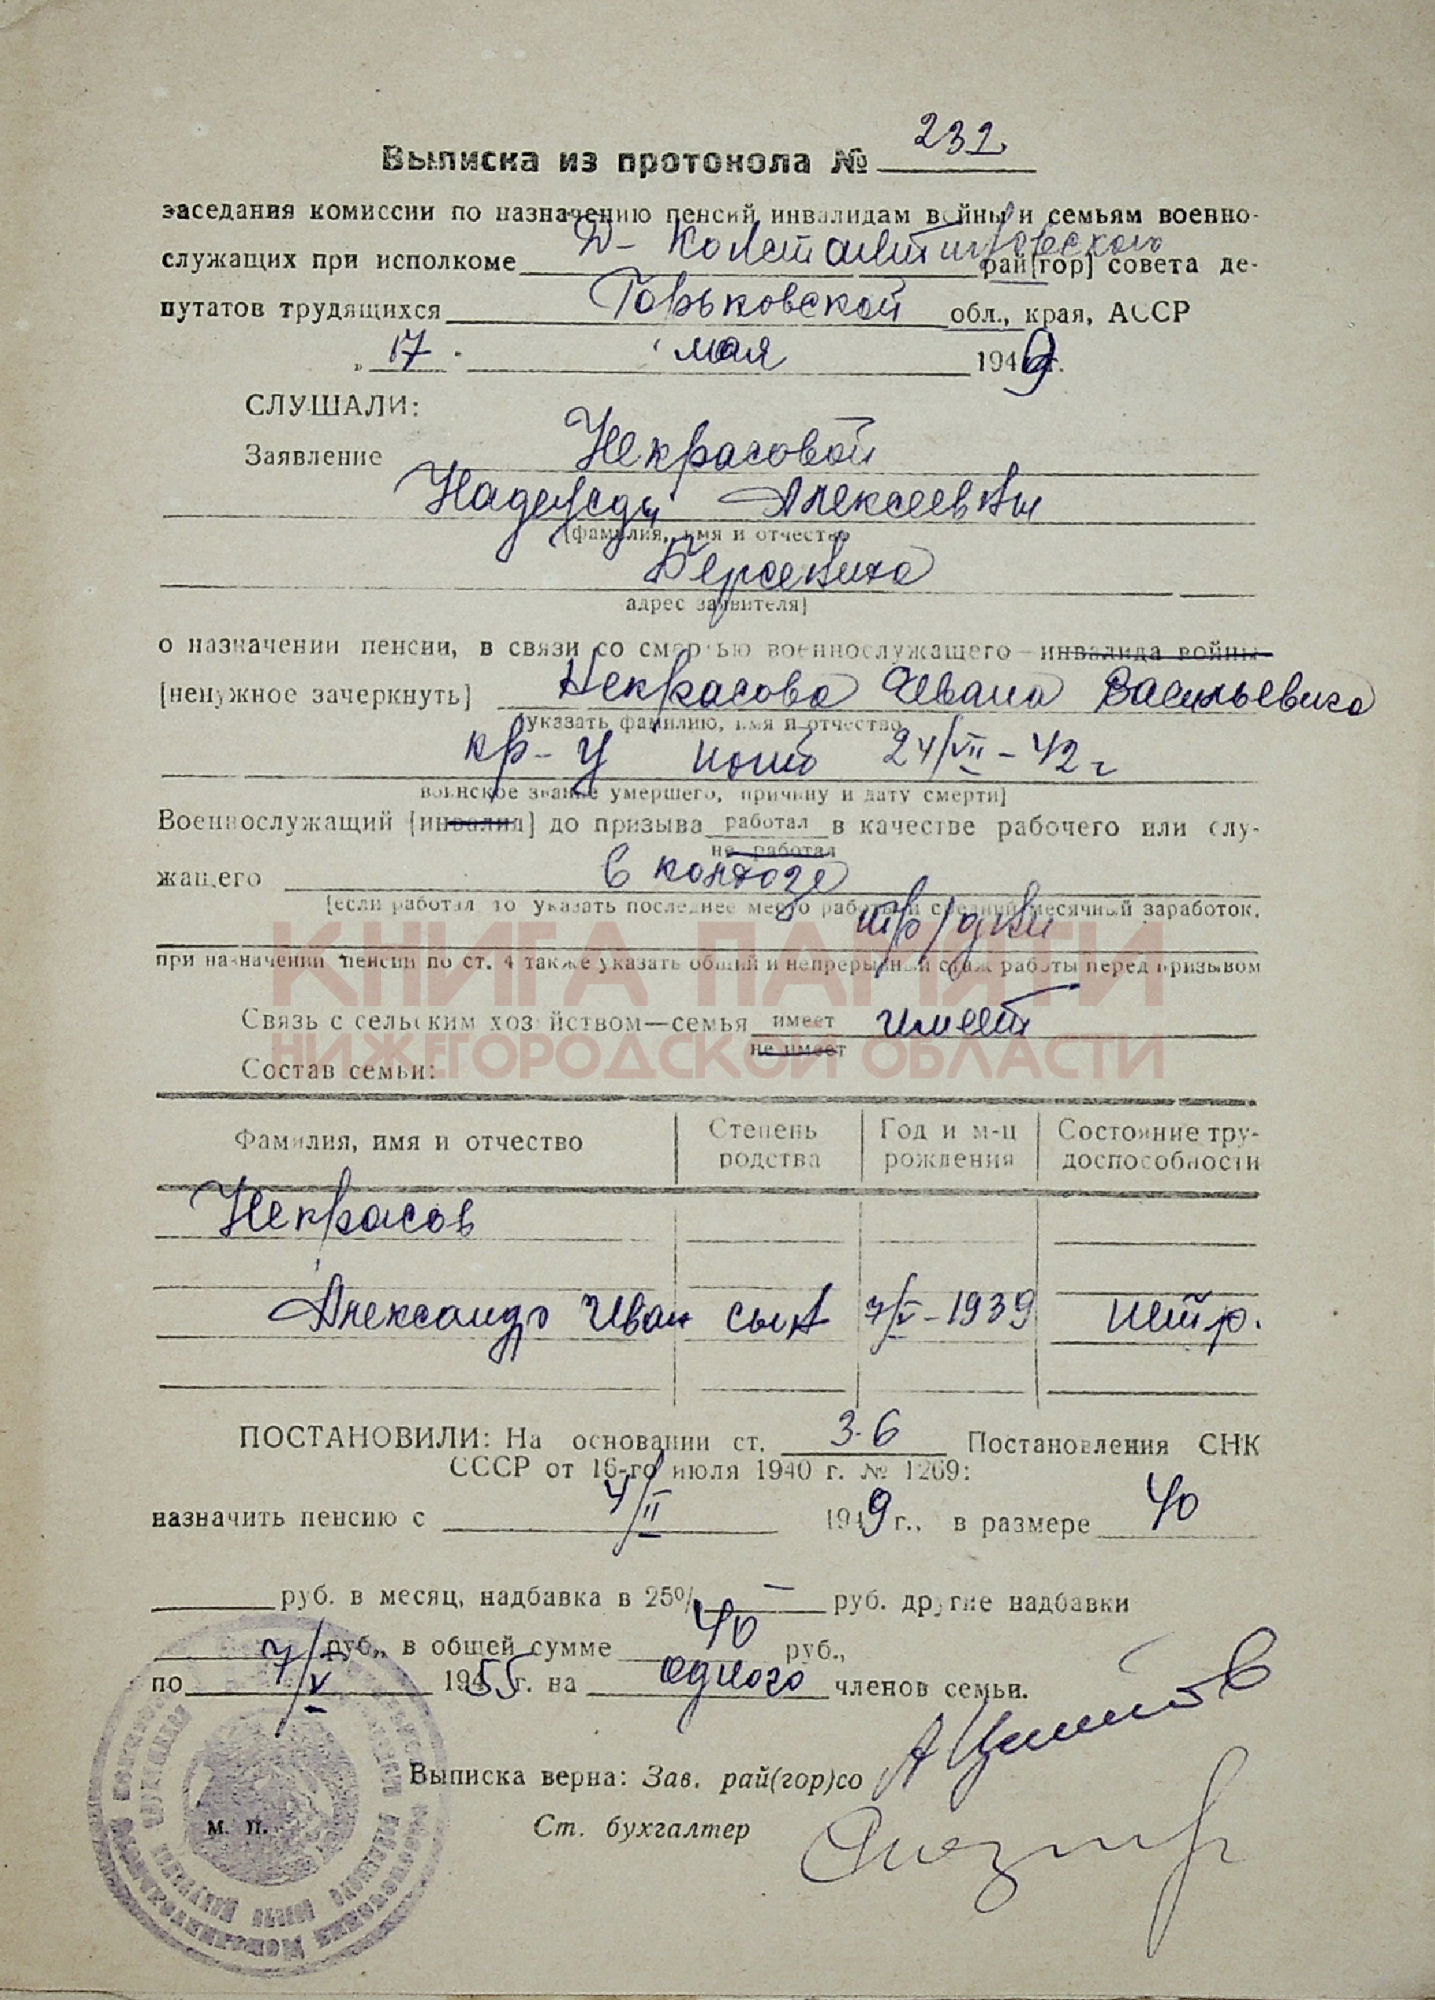 Выписка из протокола № 232
заседания комиссии по назначению пенсий инвалидам войны и семьям военно-
служащих при исполкоме Д-Константиновского рай[гор] совета де-
путатов трудящихся Горьковской обл., края, АССР
„ 17 " мая 1949 г.
СЛУШАЛИ:
Заявление Некрасовой
Надежды Алексеевны
[фамилия, имя и отчество
адрес заявителя]
о назначении пенсии, в связи со смертью военнослужащего—инвалида войны
[ненужное зачеркнуть] Некрасова Ивана Васильевича
[указать фамилию, имя и отчество
кр-ц погиб 24/VII-42 г
воинское звание умершего, причину и дату смерти]
Военнослужащий [инвалид] до призыва работал в качестве рабочего или слу-
не работал
жащего в колхозе
[если работал то указать последнее место работы и средний месячный заработок,
тр/дни
при назначении пенсии по ст. 4 также указать общий и непрерывный стаж работы перед призывом
КНИГА ПАМЯТИ
Связь с сельским хозяйством—семья имеет имеет
не имеет
НИЖЕГОРОДСКОЙ ОБЛАСТИ
Состав семьи:
Фамилия, имя и отчество Степень родства Год и м-ц рождения Состояние тру-доспособности
Некрасов
Александр Иван сын 7/V-1939 нетр.
ПОСТАНОВИЛИ: На основании ст. 3-6 Постановления СНК
СССР от 16-го июля 1940 г. № 1269:
назначить пенсию с 4/II 1949 г., в размере 40
руб. в месяц, надбавка в 25% — руб. другие надбавки
руб., в общей сумме 40 руб.,
по 7/V 1955 г. на одного членов семьи.
Выписка верна: Зав. рай(гор)со
м. п.
Ст. бухгалтер